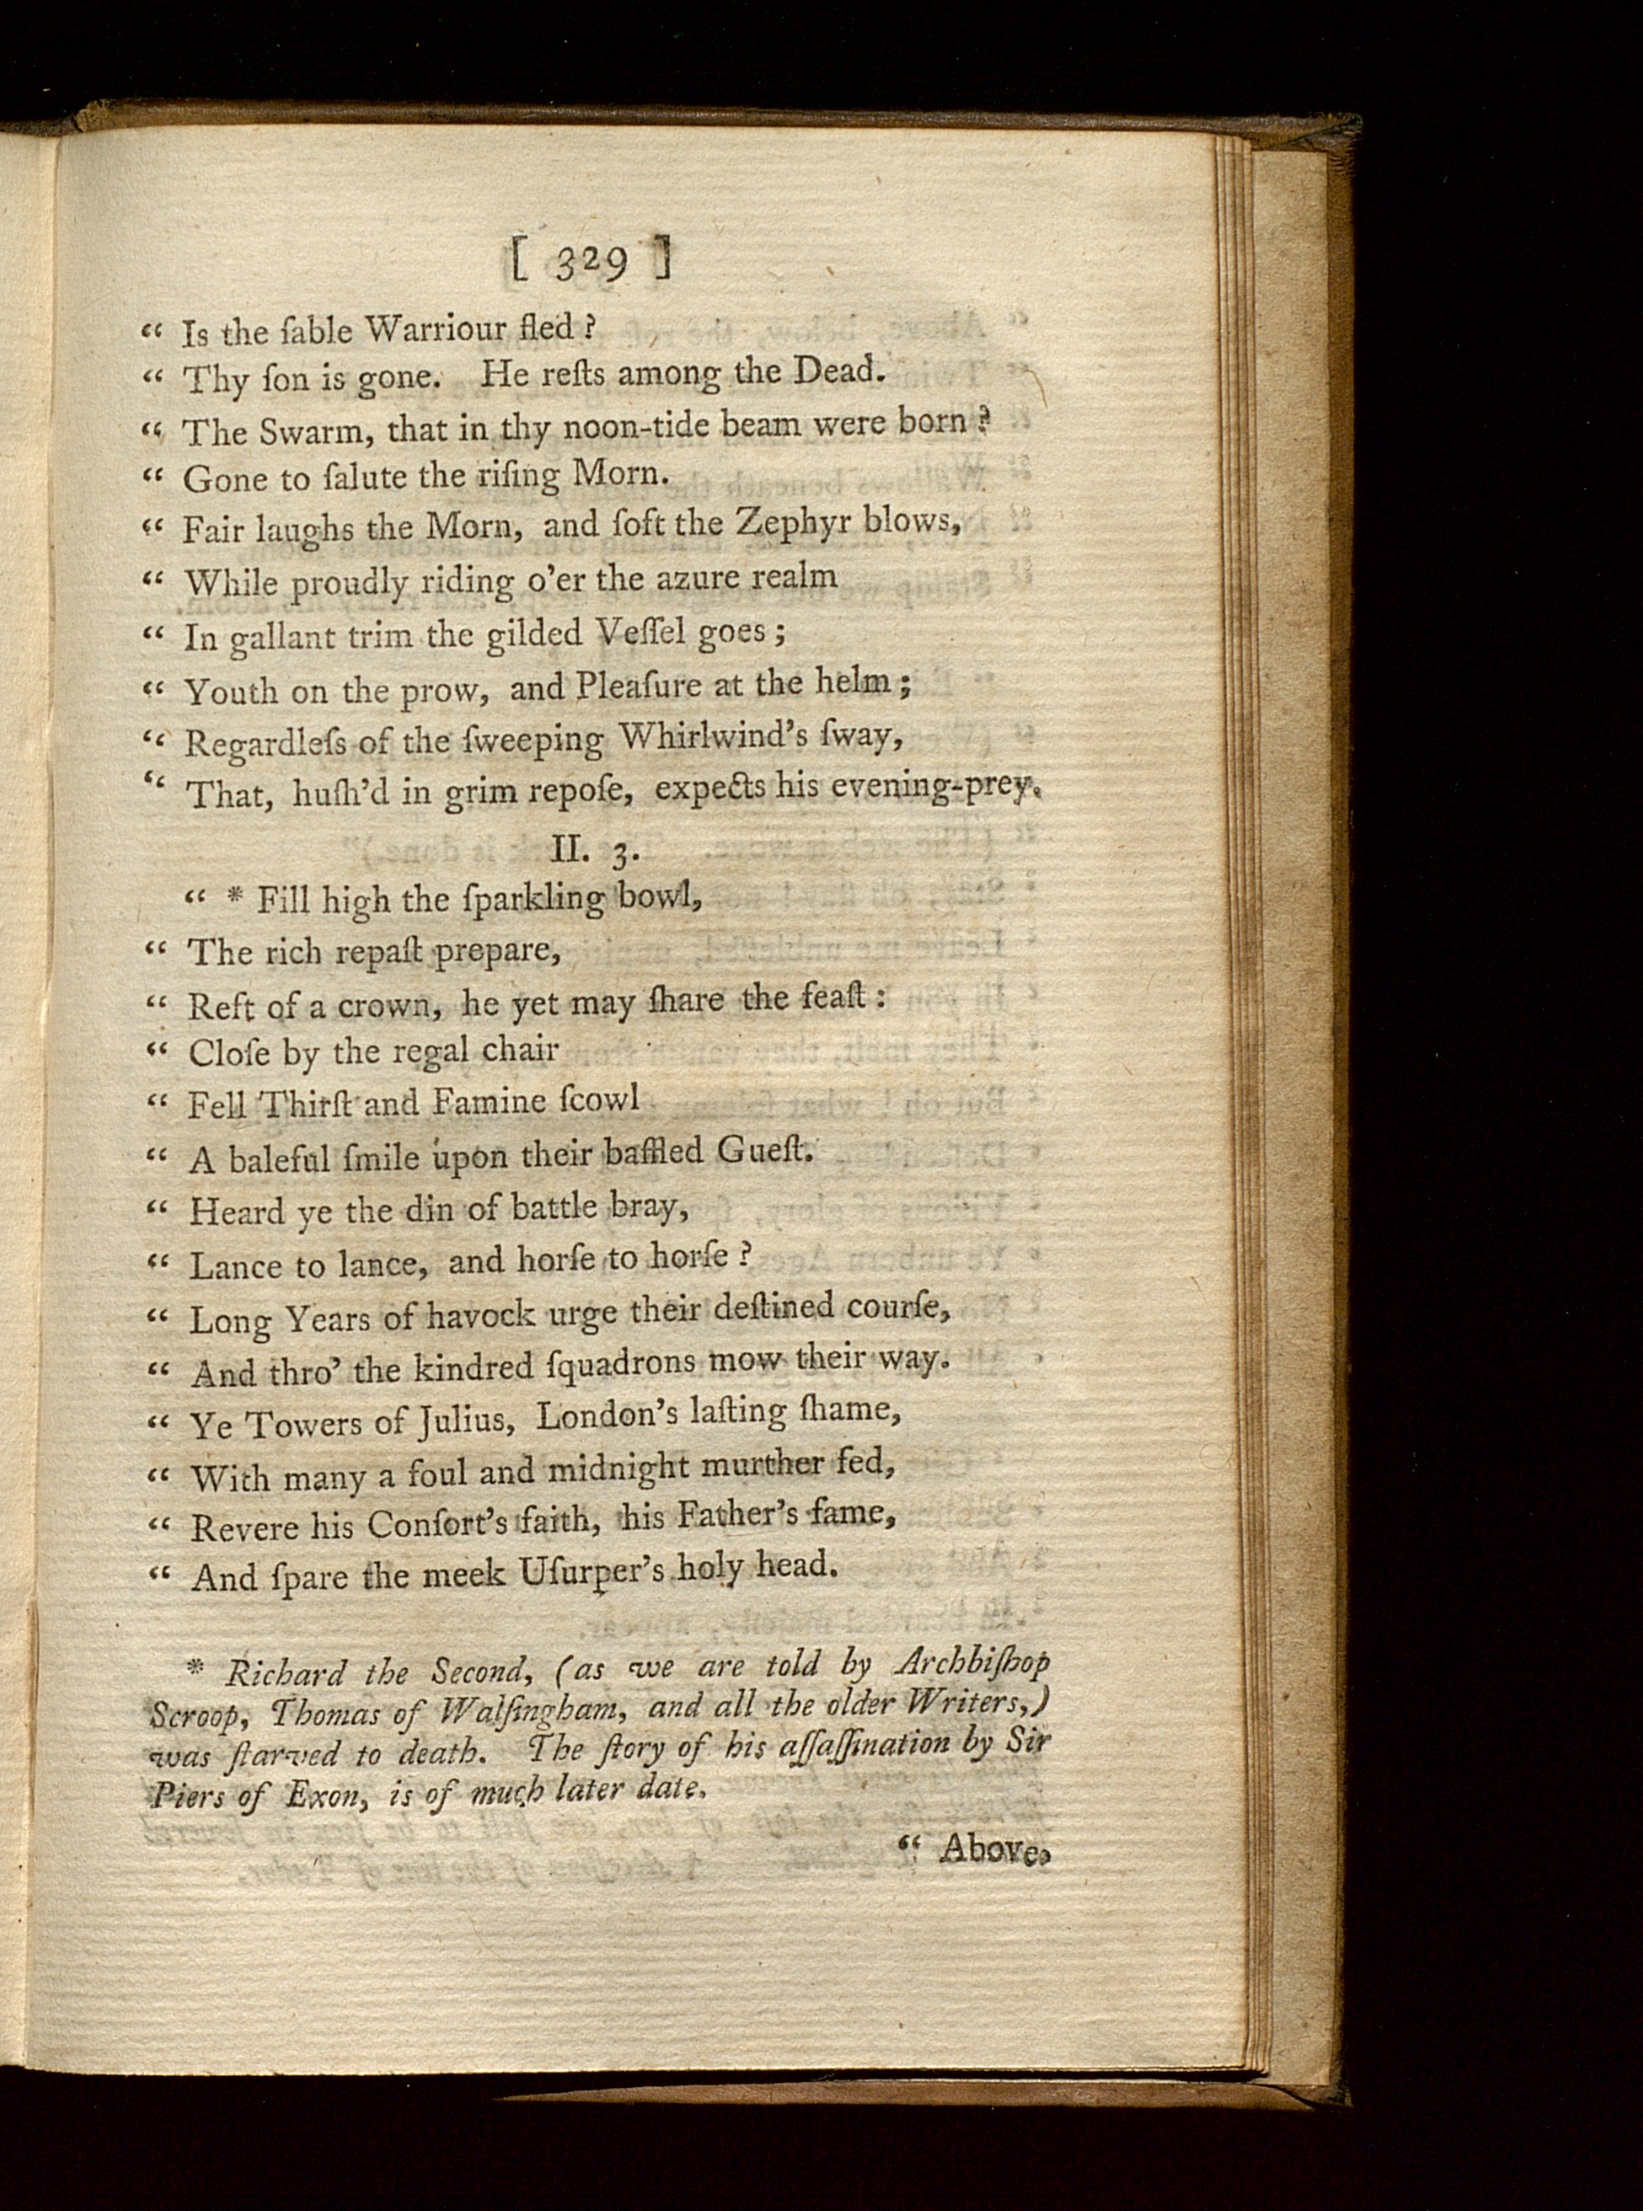 [ 329 ]
“ Is the ſable Warriour fled ?
“ Thy ſon is gone. He reſts among the Dead.
“ The Swarm, that in thy noon-tide beam were born ?
“ Gone to ſalute the riſing Morn.
“ Fair laughs the Morn, and ſoft the Zephyr blows,
“ While proudly riding o’er the azure realm
“ In gallant trim the gilded Veſſel goes ;
“ Youth on the prow, and Pleaſure at the helm ;
“ Regardleſs of the ſweeping Whirlwind’s ſway,
“ That, huſh’d in grim repoſe, expects his evening-prey.
II. 3.
“ * Fill high the ſparkling bowl,
“ The rich repaſt prepare,
“ Reft of a crown, he yet may ſhare the feaſt :
“ Cloſe by the regal chair
“ Fell Thirſt and Famine ſcowl
“ A baleful ſmile upon their baffled Gueſt.
“ Heard ye the din of battle bray,
“ Lance to lance, and horſe to horſe ?
“ Long Years of havock urge their deſtined courſe,
“ And thro’ the kindred ſquadrons mow their way.
“ Ye Towers of Julius, London’s laſting ſhame,
“ With many a foul and midnight murther fed,
“ Revere his Conſort’s faith, his Father’s fame,
“ And ſpare the meek Uſurper’s holy head.
* Richard the Second, (as we are told by Archbiſhop
Scroop, Thomas of Walſingham, and all the older Writers,)
was ſtarved to death. The ſtory of his aſſaſſination by Sir
Piers of Exon, is of much later date.
“ Above.